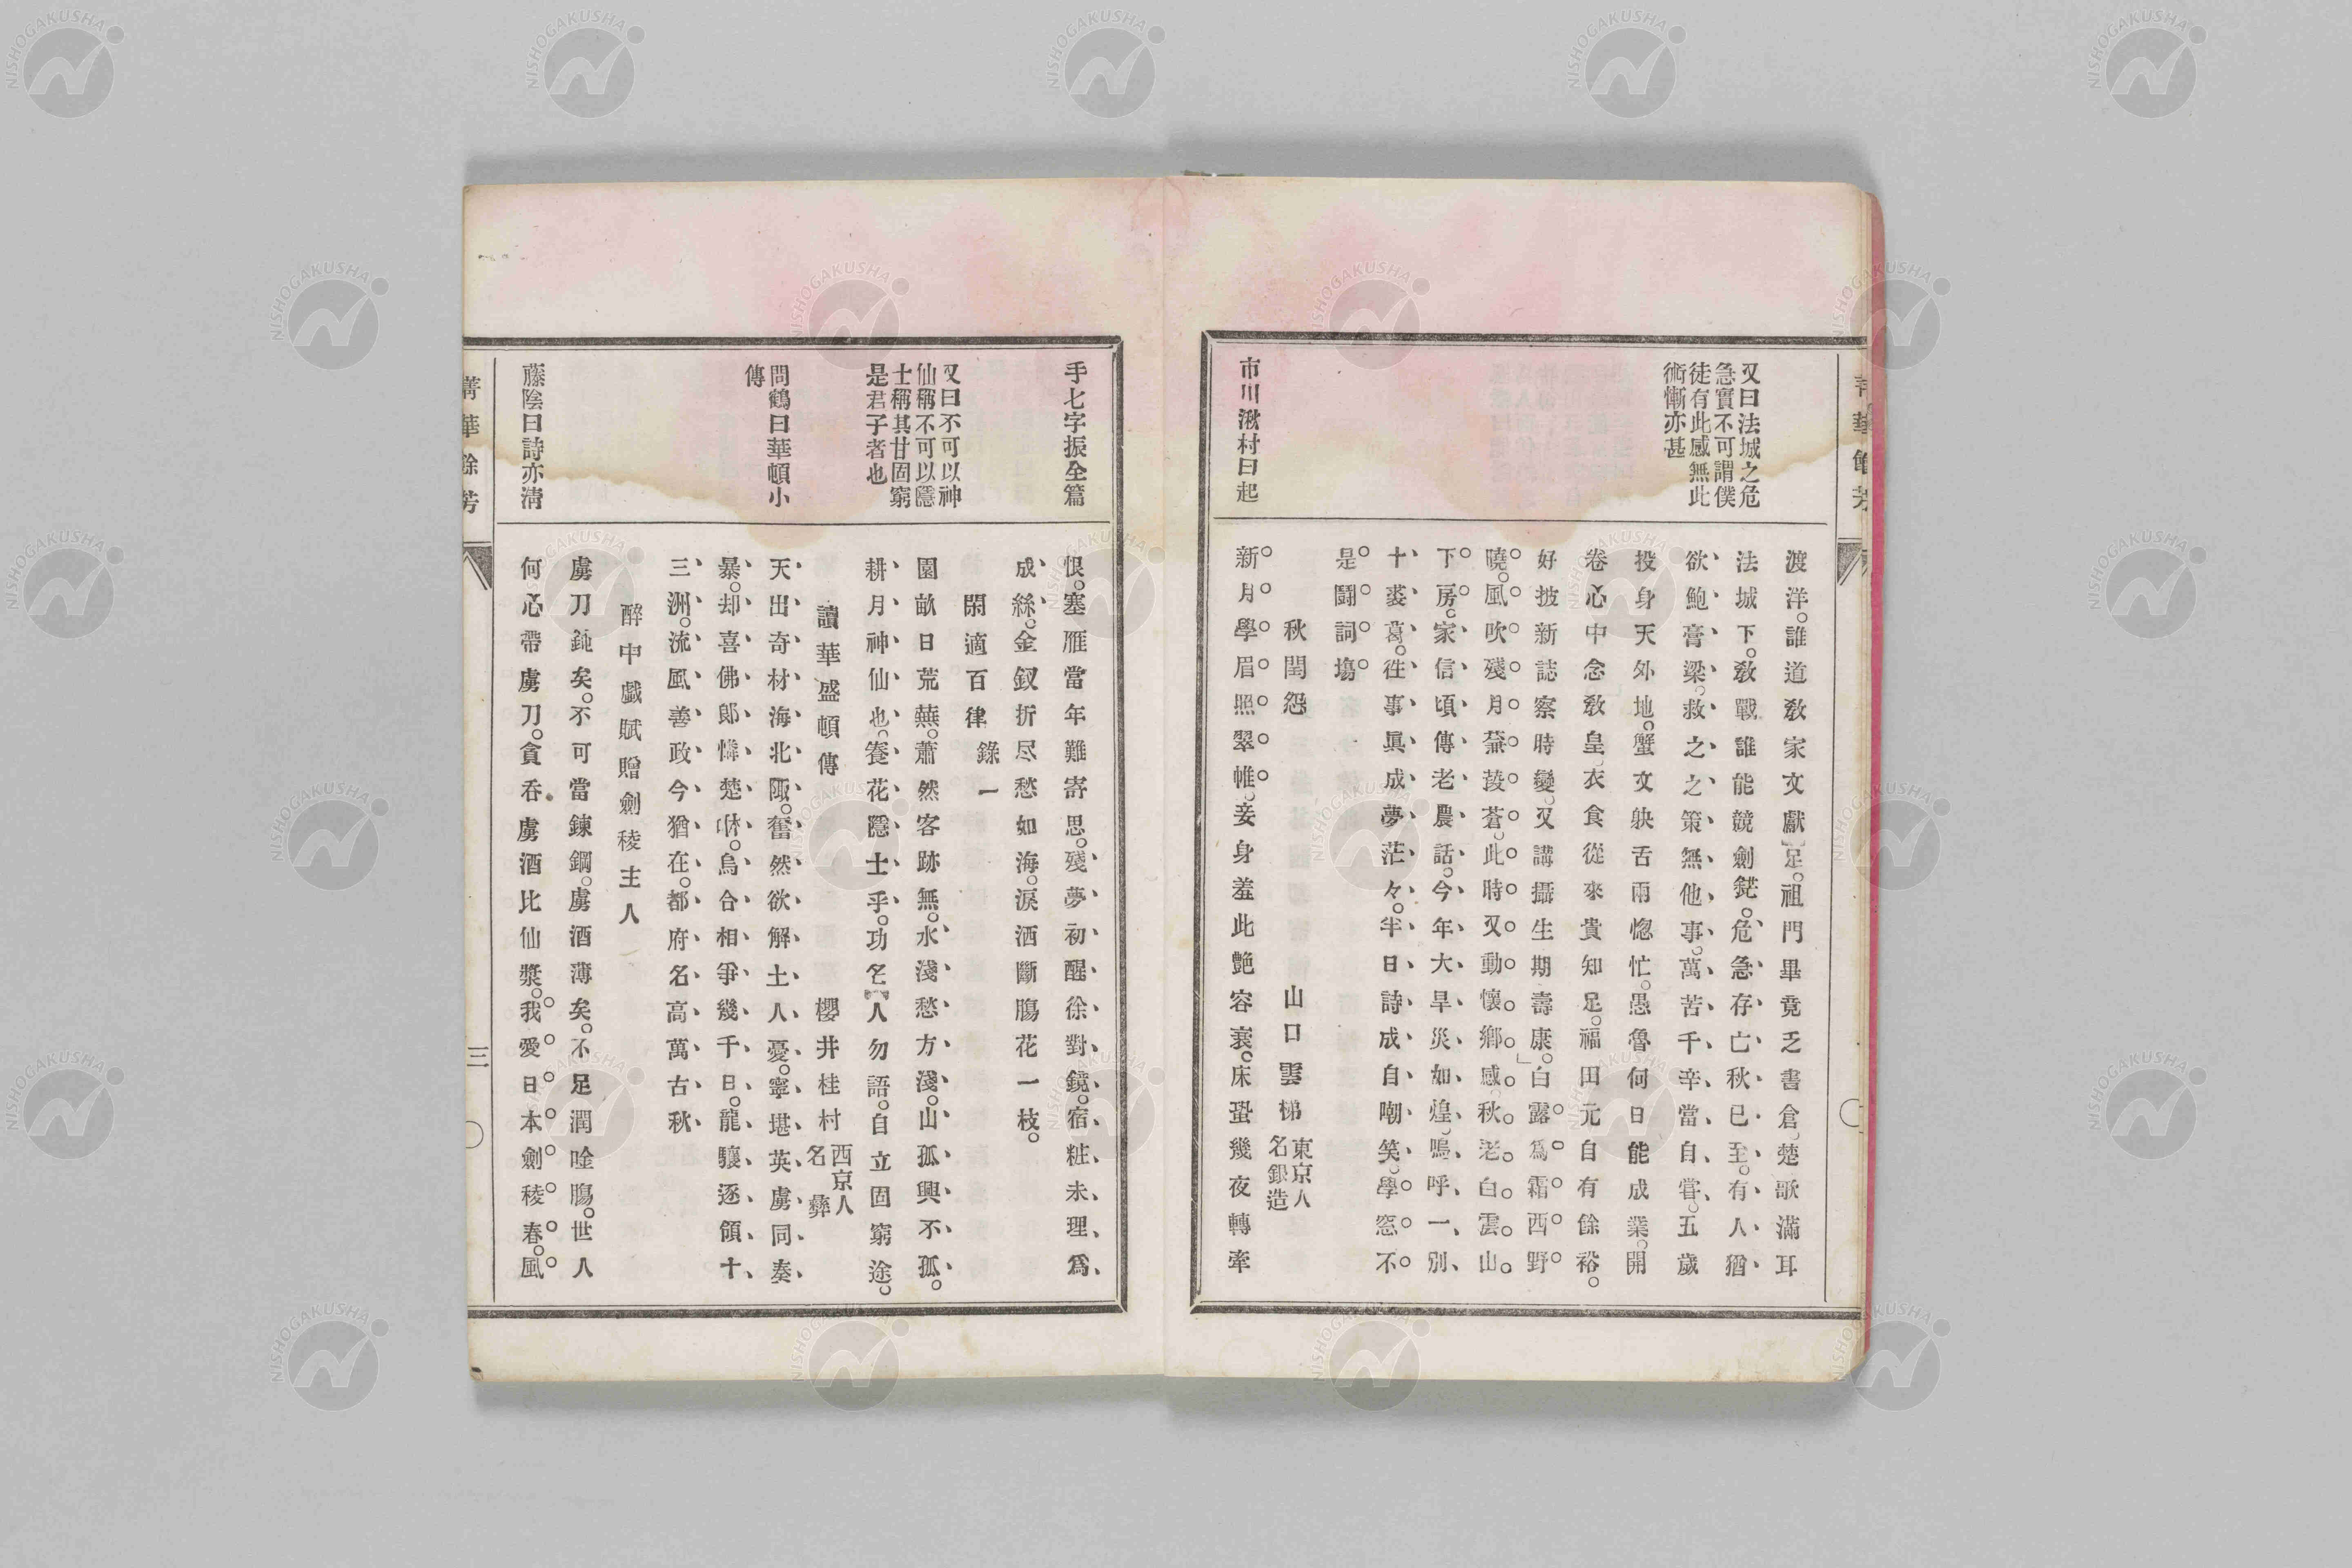 又曰法城之危
急實不可謂僕
徒有此感無此
術慚亦甚
市川湫村曰起
渡洋。誰道敎家文獻足。祖門畢竟乏書倉。楚歌滿耳
法城下。敎戰誰能競劍鋩。危急存亡秋已至。有人猶
欲鮑膏梁。救之之策無他事。萬苦千辛當自甞。五歲
投身天外地。蟹文鴃舌兩惚忙。愚魯何日能成業。開
卷心中念敎皇。衣食從來貴知足。福田元自有餘裕。
好披新誌察時變。又講攝生期壽康。」白露爲霜西野
曉。風吹殘月蒹葭蒼。此時又動懷鄉感。秋老白雲山
下房。家信頃傳老農話。今年大旱災如煌。嗚呼一別
十裘葛。徃事眞成夢茫々。半日詩成自嘲笑。學窓不
是鬪詞塲。
秋閨怨
山口雲梯
東京人
名銀造
新月學眉照翠帷。妾身羞此艶容衰。床蛩幾夜轉牽
手七字振全篇
又曰不可以神
仙稱不可以隱
士稱其甘固窮
是君子者也
問鶴曰華頓小
傳
藤陰曰詩亦淸
恨。塞雁當年難寄思。殘夢初醒徐對鏡。宿粧未理爲
成絲。金釵折尽愁如海。淚洒斷膓花一枝。
閑適百律
錄一
園畝日荒蕪。蕭然客跡無。水淺愁方淺。山孤興不孤。
耕月神仙也。養花隱士乎。功名人勿語。自立固窮途。
讀華盛頓傳
櫻井桂村
西京人
名彝
天出奇材海北陬。奮然欲解土人憂。寧堪英虜同奏
暴。却喜佛郞憐楚咻。烏合相爭幾千日。龍驤逐領十
三洲。流風善政今猶在。都府名高萬古秋
醉中戯賦贈劍稜主人
虜刀鈍矣。不可當鍊鋼。虜酒薄矣。不足潤唫膓。世人
何心帶虜刀。貪呑虜酒比仙漿。我愛日本劍稜春。風
菁華餘芳
三